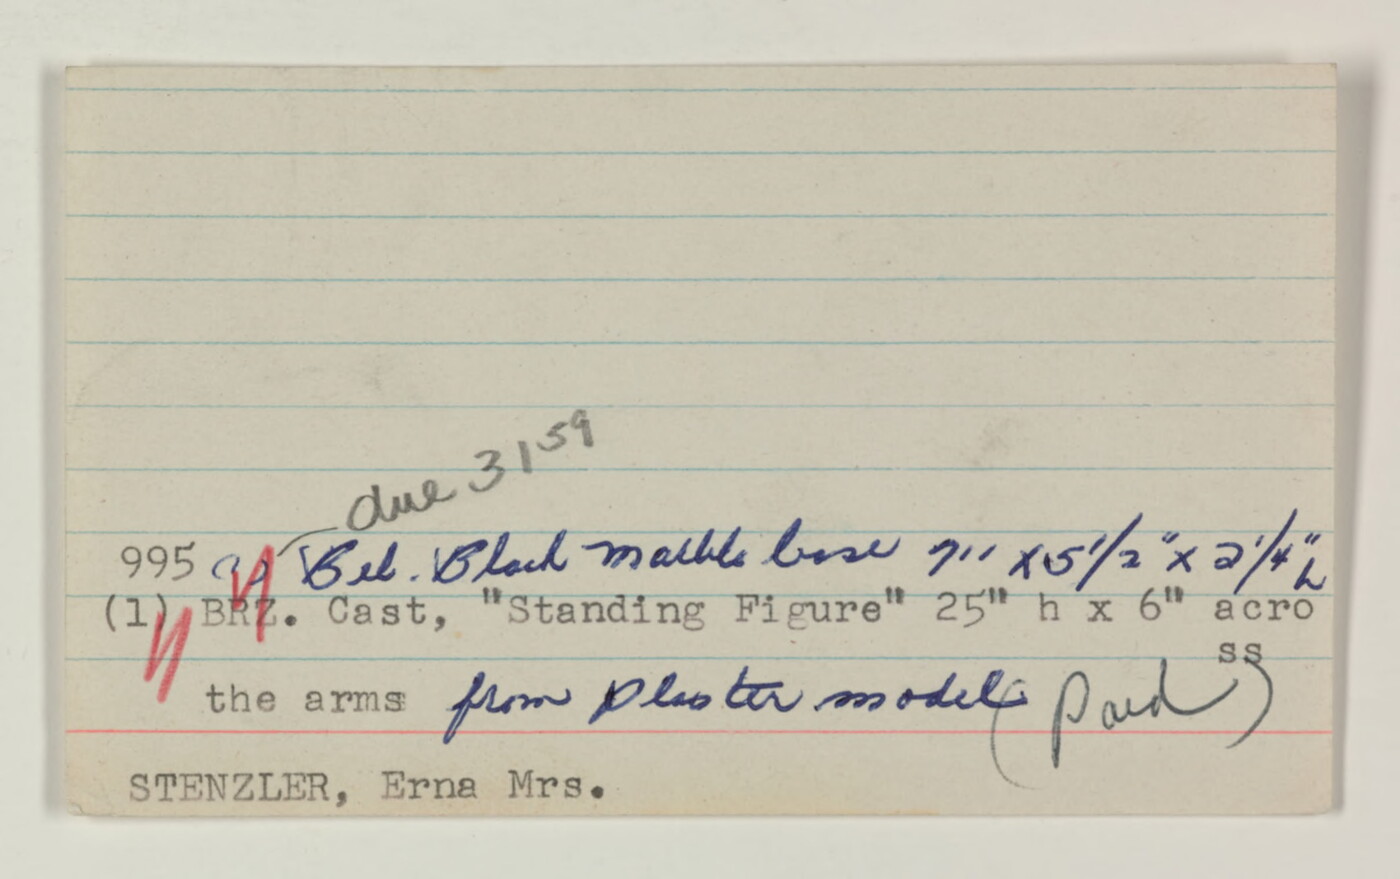 due 3 1 59
995 (1) Bel. Black Marble base 7" x 5 1/2" x 2 1/4" h
(1) BRZ. Cast, "Standing Figure" 25" h x 6" acro
ss
the arms from Plaster model (Paid)
STENZLER, Erna Mrs.